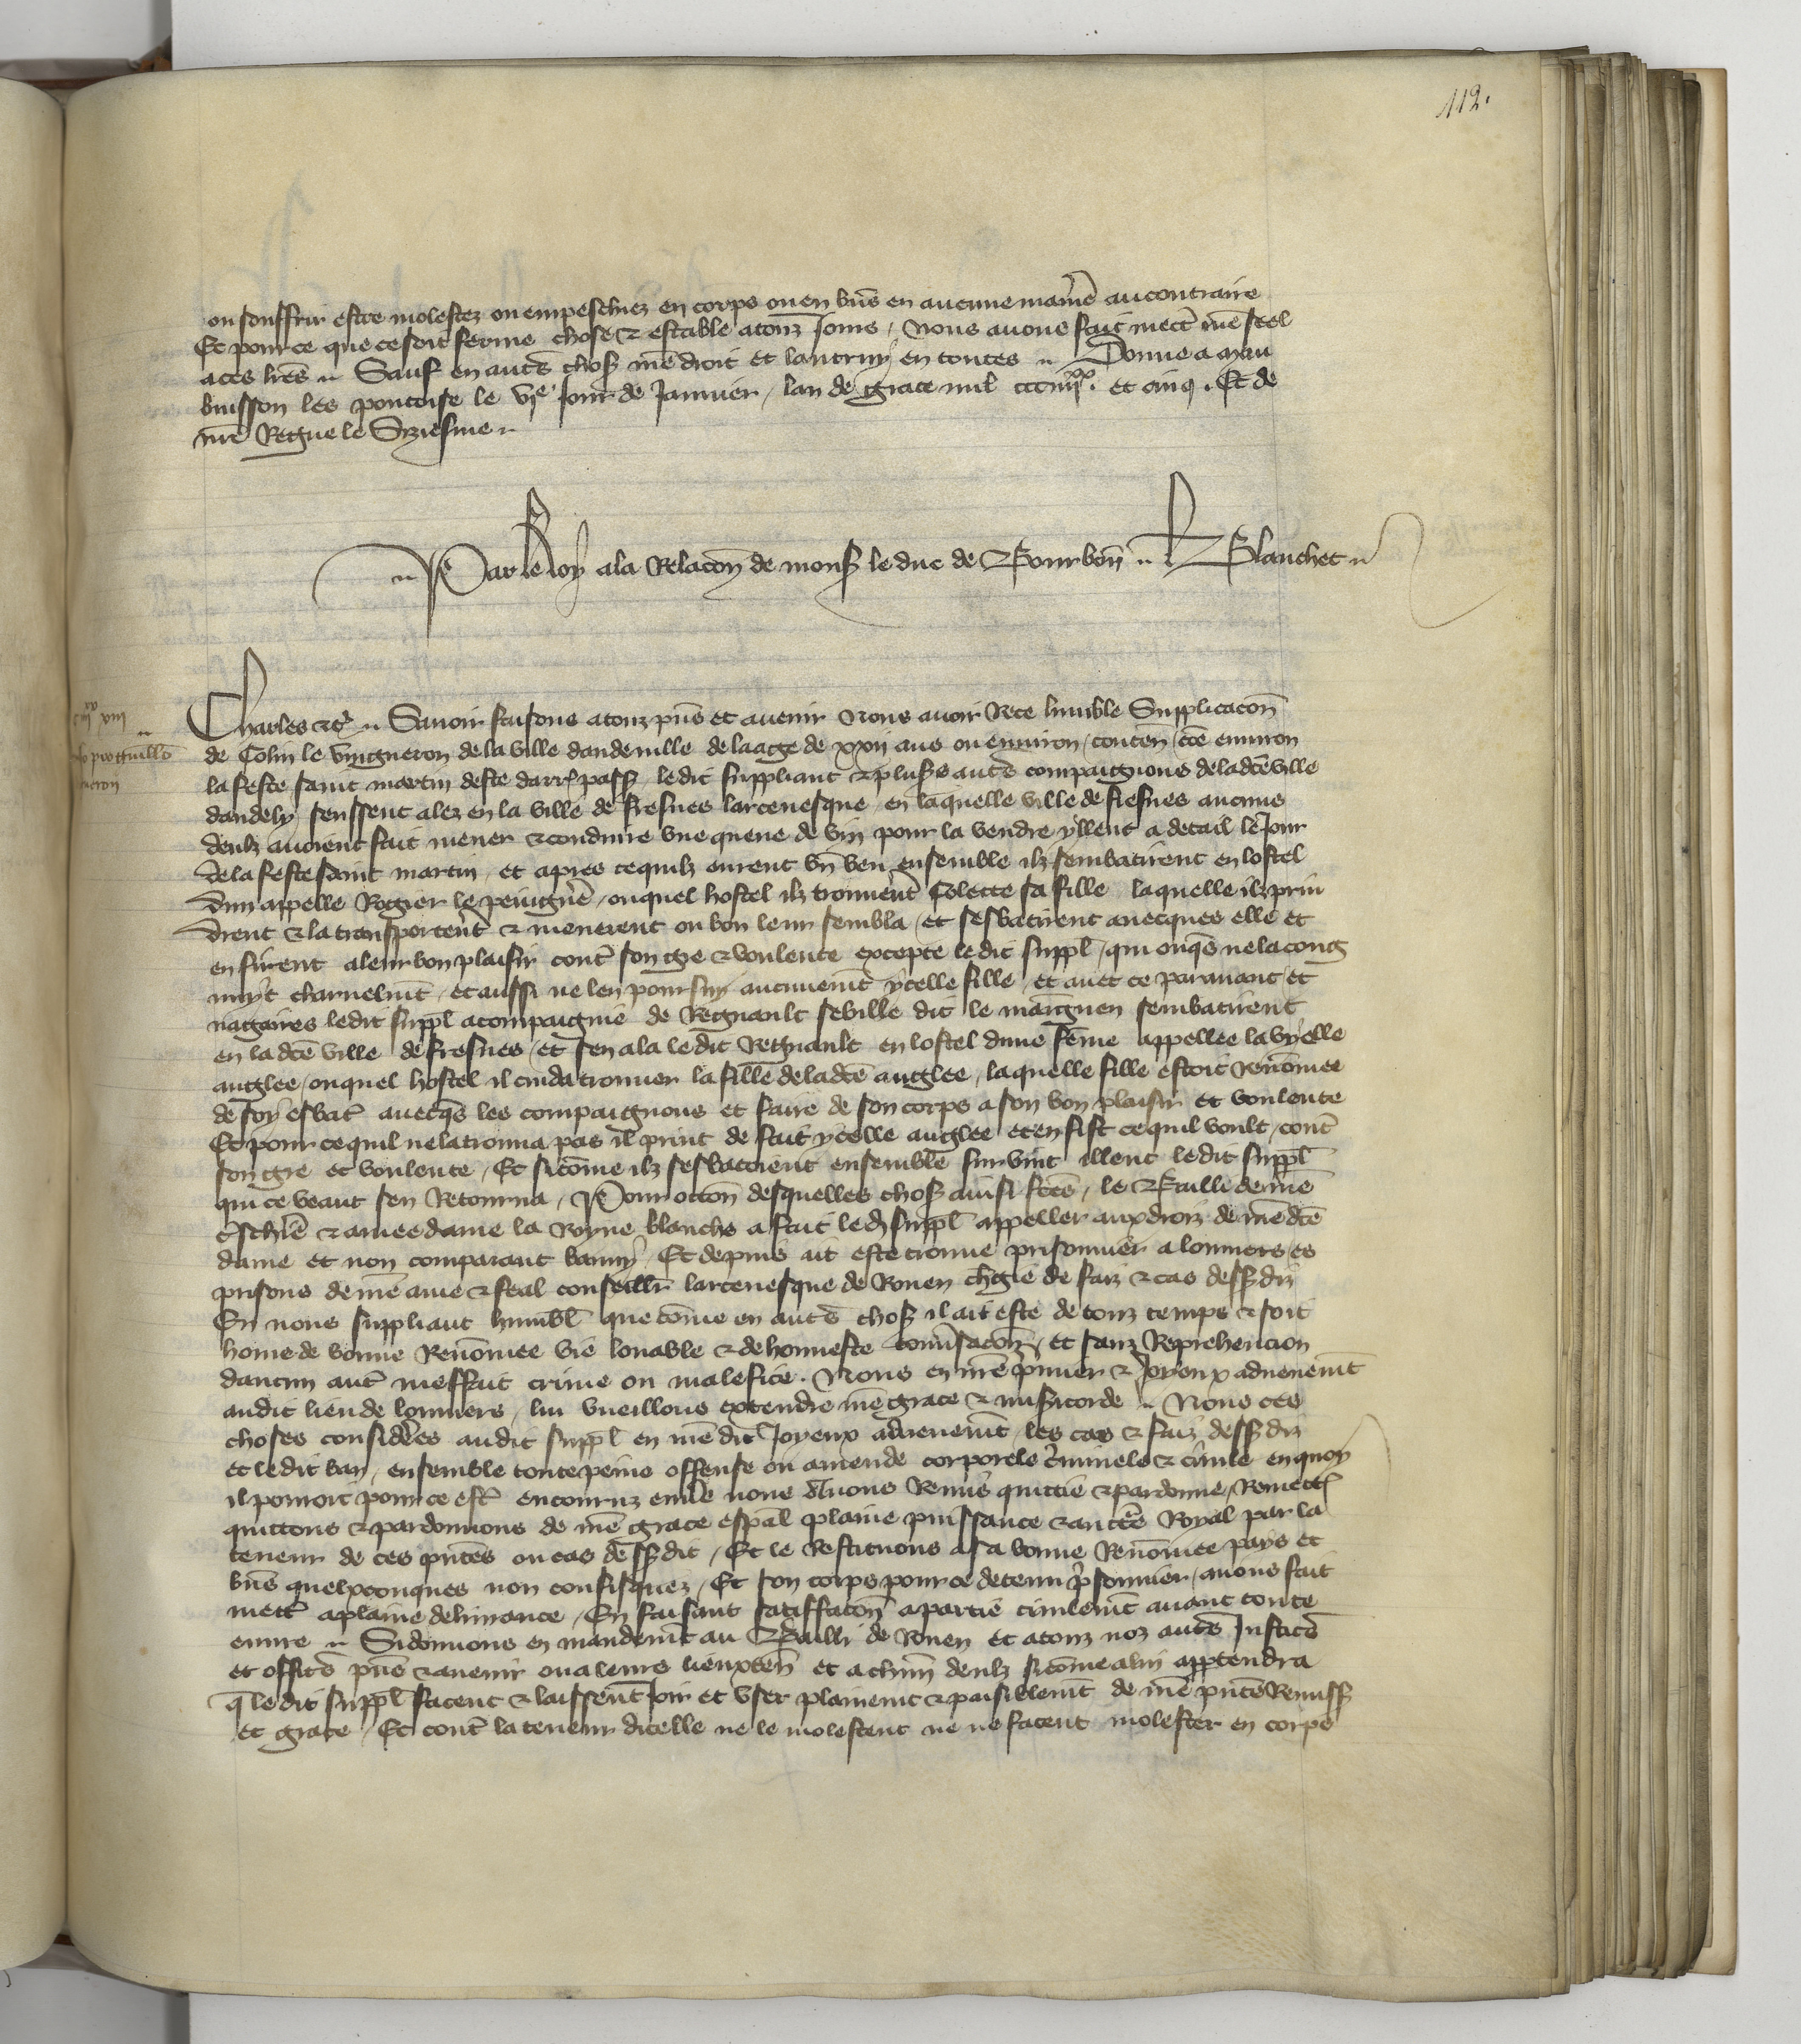 112.
ou souffrir estre molestez ou empeschiez en corps ou en biēs en aucune maniē au contraire
Et pour ce que ce soit ferme chose & estable a touz jours / Nous avons fait mectr̄ nr̄e seel
a ces lr̄es ~ Sauf en autr̄s chos̄ nr̄e droit et lautruy en toutes ~ Donne a mau
buisson les pontoise le vje jour de Janvier / lan de grace mil ccciiijxx. et cinq. Et de
nr̄e Regne le Siziesme ~
~ Par le Roy a la Relacōn de mons̄ le duc de Bourbōn ~ L Blanchet ~
Charles &c̄ ~ Savoir faisons a touz pn̄s et avenir Nous avoir Rece humble Supplicacōn
de Colin le vingneron de la ville dandeville de laage de xxij ans ou environ / conten̄ / cōe environ
la feste saint martin deste darr̄ pass̄ / ledit suppliant & plus̄s autr̄s compaignons de la dc̄e ville
dandely feussent alez en la ville de fresnes larcevesque en laquelle ville de fresnes aucuns
deulz avoient fait mener & conduire une queue de vin pour la vendre yllent a detail le Jour
de la feste saint martin / et apres ce quilz eurent un̄ beu ensemble ilz sembatirent en lostel
dun appelle Rogier le peingnē / ouquel hostel ilz trouvēnt Colecte sa fille laquelle ilz prin
drent & la transportēnt & menerent ou bon leur sembla / et sesbatirent avecques elle et
en firent a leur bon plaisir contr̄ son gre & voulente excepte ledit suppl̄ / qui onqs̄ ne la cong
nuyt charnelmt̄ / et aussi ne len poursuy aucunemt̄ ycelle fille / et avet ce paravant et
nagaires ledit suppl̄ acompaignie de Regnault sebille dit le maingnen sembatirent
en la dc̄e ville de fresnes / et sen ala ledit Regnault en lostel dune fēme appellee la vyelle
anglee / ouquel hostel il cuida trouver la fille de la dc̄e anglee / laquelle fille estoit Renōmee
de soy esbatr̄ avecqs̄ les compaignons et faire de son corps a son bon plaisir et voulente
Et pour ce quil ne la trouva pas il print de fait ycelle anglee et en fist ce quil voult / contr̄
son gre et voulente / Et si cōme ilz sesbatoient ensemble survint illenc ledit suppl̄
qui ce veant sen Retourna / Pour occōn desquelles chos̄ ainsi fc̄es / le Bailli de nr̄e
t̄schiē & amee dame la Royne blanche a fait led̄ suppl̄ appeller aux droiz de nr̄e dc̄e
dame et non comparant banny / Et depuis ait este trouve prisonnier a louviers es
prisons de nr̄e ame & feal conseillr̄ larcevesque de Rouen ch̄gie de faiz & cas dess̄ diz
En nous suppliant humbl̄ que cōme en autr̄s chos̄ il ait este de touz temps & soit
home de bonne Renōmee vie louable & de honneste conv̄sacōn / et sanz Reprehencion
daucun autr̄ meffait crime ou malefice. Nous en nr̄e p̄mier & Joyeux advenemt̄
audit lieu de louviers / lui vueillons extendre nr̄e grace & mis̄icorde ~ Nous ces
choses considēes audit suppl̄ en nr̄e dit Joyeux advenemt̄ / les cas & faiz dess̄ diz
et ledit ban / ensemble toute peine offense ou amende corporele c̄minele & civile en quoy
il pourroit pour ce estr̄ encouruz env̄s nous avons Remis quictie & pardonne / Remectōs
quictons & pardonnons de nr̄e grace esp̄al plaine puissance & auctē Royal par la
teneur de ces pn̄tes ou cas dess̄ dit / Et le Restituons a sa bonne Renōmee pays et
biēs quelxconques non confisquez / Et son corps pour ce detenu p̄sonnier / avons fait
mectr̄ a plaine delivrance / En faisant satiffacōn a partie civilemt̄ avant toute
euvre ~ Si donnons en mandemt̄ au Bailli de Rouen et a touz noz autr̄s Justic̄s
et offic̄s pn̄s & avenir ou a leurs lieuxteñ et a chūn deulz si cōme a lui app̄tendra
q̄ ledit suppl̄ facent & laissent Joir et user plainemt̄ & paisiblemt̄ de nr̄e pn̄te Remiss̄
et grace / Et contr̄ la teneur dicelle ne le molestent ne ne facent molester en corps